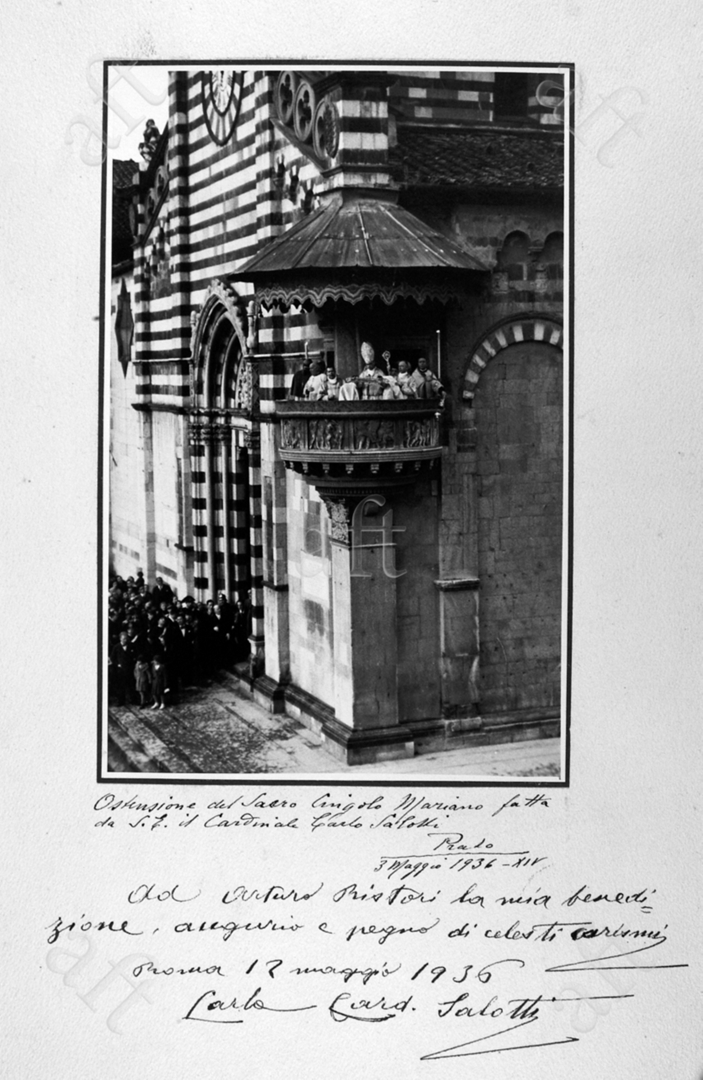 Ostensione del Sacro Cingolo Mariano fatta
da S.E. il Cardinale Carlo Salotti
Prato
3 Maggio 1936 - XIV
Ad Arturo Ristori la mia benedi=
zione, augurio e pegno di celesti carismi
Roma 12 maggio 1936
Carlo Card. Salotti
aft
aft
aft
aft
aft